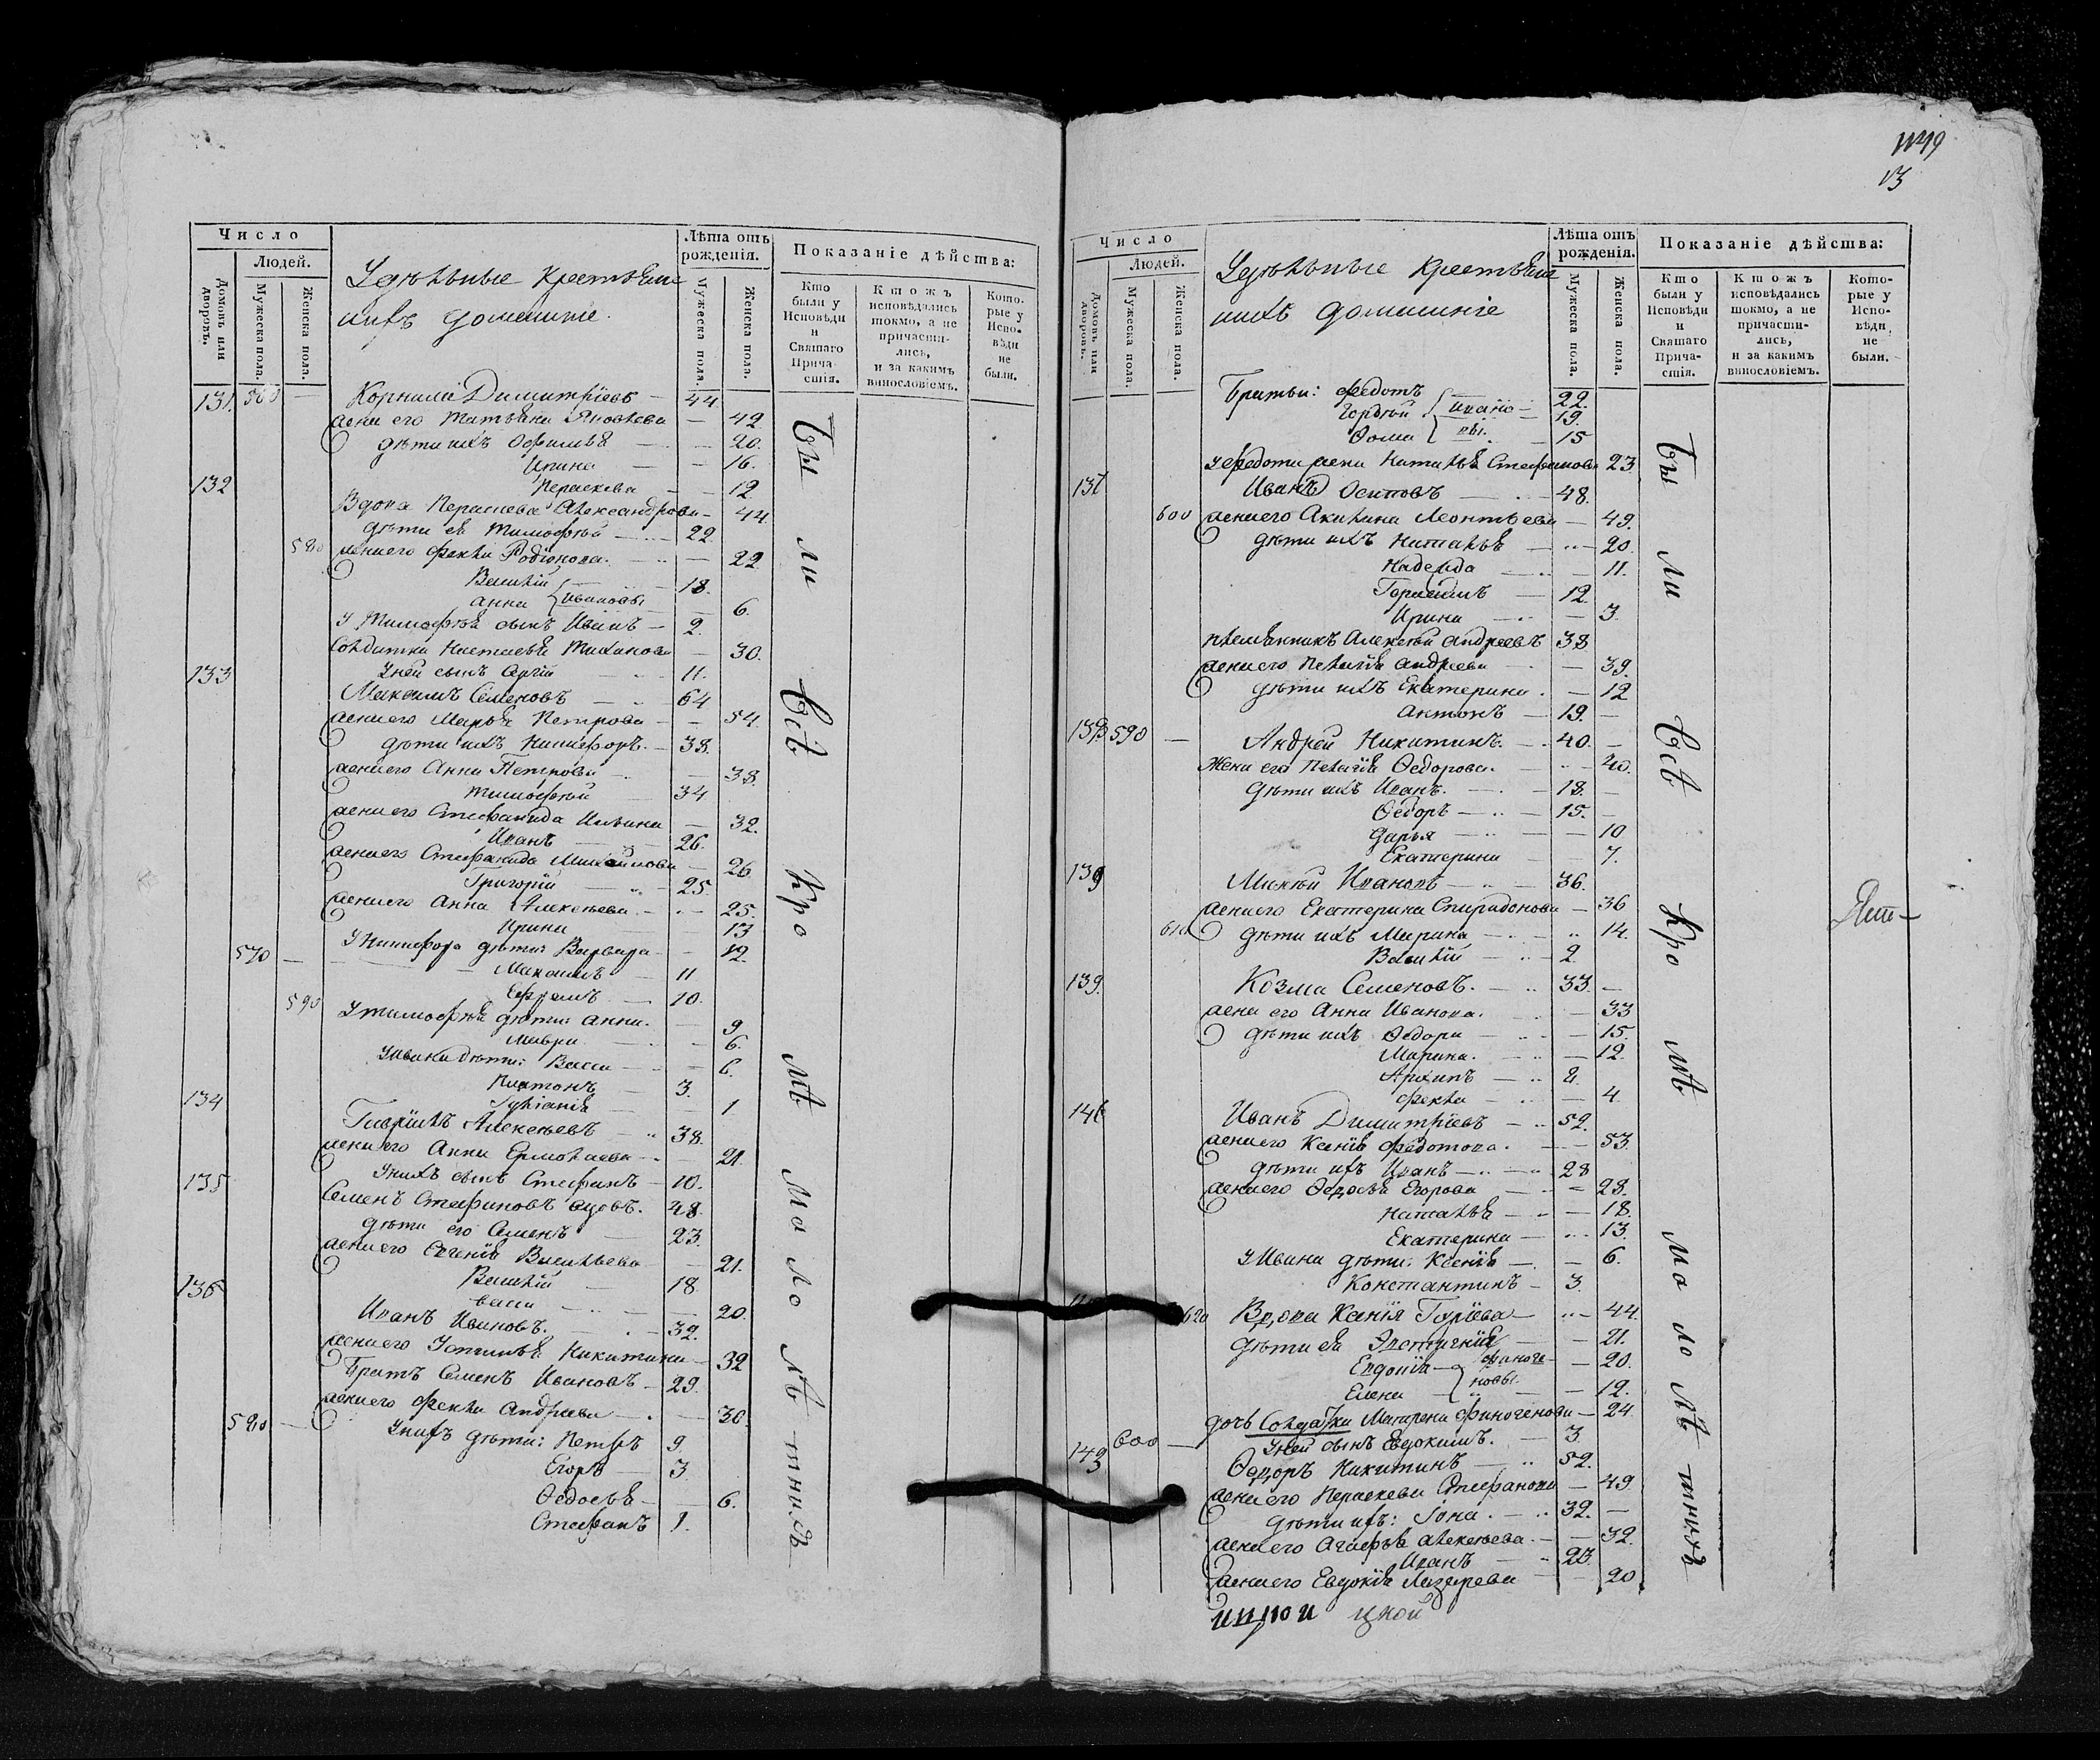 Число
Людей.
Домовъ или дворовъ.
Мужеска пола.
Женска пола.
Удѣльные крестьяне
ихъ домашніе.
Лѣта отъ рожденія.
Мужеска пола.
Женска пола.
Показаніе дѣйства:
Кто были у Исповѣди и Святаго Прича-стія.
Ктожъ исповѣдались токмо, а не причасти-лись, и за какимъ винословіемъ.
Кото-рые у Испо-вѣди не были.
131. 560 — Корнилій Димитріевъ — 44
жена его Татьяна Яковлева — 42
дѣти ихъ Офимья — 20.
Ирина — 16.
Параскева — 12
132 Вдова Параскева Александрова — 44
дѣти ея Тимофѣй — 22
580 жена его Фекла Родіонова. — 22
Василій 18.
Анна Ивановы 6.
У Тимофѣя сынъ Иванъ — 2.
Солдатка Настасья — 30.
У ней сынъ Сергій — 11.
133 Максимъ Семеновъ — 64
жена его Марья Петрова — 54.
дѣти ихъ Никифоръ. — 38.
жена его Анна Петрова — 38.
Тимофѣй 34
жена его Стефанида Ильина — 32.
Иванъ 26.
жена его Стефанида Михайлова — 26
Григорій — 25.
жена его Анна Алексѣева. — 25.
Ирина 13
У Никифора дѣти: Варвара — 12.
570 — Максимъ — 11
590 Ефремъ — 10.
У Тимофѣя дѣти: Анна. — 9
Мавра — 6.
У Ивана дѣти: Васса — 6.
Платонъ — 3.
Іуліанія — 1
134 Гавріилъ Алексѣевъ — 38.
жена его Анна Ермолаева — 21.
У нихъ сынъ Стефанъ — 10.
135 Семенъ Стефановъ вдовъ. 48.
дѣти его Семенъ — 23.
жена его Евгенія Васильева — 21.
Василій — 18.
Васса — 20.
136 Иванъ Ивановъ. — 32.
жена его Устинья Никитина — 32
Братъ Семенъ Ивановъ — 29.
жена его Фекла Андреева — 30.
580 — У нихъ дѣти: Петръ 9.
Егоръ — 3.
Ѳедосья — 6.
Стефанъ 1.
Были
всѣ
кро
мѣ
ма
ло
лѣ
тнихъ
13
Число
Людей.
Домовъ или дворовъ.
Мужеска пола.
Женска пола.
Удѣльные крестьяне
ихъ домашніе
Лѣта отъ рожденія.
Мужеска пола.
Женска пола.
Показаніе дѣйства:
Кто были у Исповѣди и Святаго Прича-стія.
Ктожъ исповѣдались токмо, а не причасти-лись, и за какимъ винословіемъ.
Кото-рые у Испо-вѣди не были.
Братья: Федотъ 22.
Гордѣй Ивано — 19.
Ѳома вы. — 15
У Федота жена Наталья Стефанова 23
137 Иванъ Осиповъ — 48.
600 жена его Акилина Леонтьева — 49.
дѣти ихъ Наталья — 20.
Надежда — 11.
12
Ирина — 3.
племянникъ Алексѣй Андреевъ 38
жена его Пелагія Андреева — 39.
дѣти ихъ Екатерина. — 12
Антонъ — 19. —
138 590 — Андрей Никитинъ. — 40. —
Жена его Пелагія Ѳедорова. — 40.
дѣти ихъ Иванъ. — 18. —
Ѳедоръ — 15. —
Дарья — 10
Екатерина — 7.
139 Ивановъ — 36.
жена его Екатерина Спиридонова — 36
610 дѣти ихъ Марина — 14.
Василій — 2.
139. Козма Семеновъ. — 33. —
жена его Анна Иванова. — 33
дѣти ихъ Ѳедора — 15.
Марина. — 12.
Архипъ — 8.
Фекла — 4.
Иванъ Димитріевъ — 52.
жена его Ксенія Федотова. — 53.
дѣти ихъ Иванъ — 28
жена его Ѳедосья Егорова — 28.
Наталья — 18.
Екатерина — 13.
У Ивана дѣти: Ксенія — 6.
Константинъ — 3.
620 Вдова Ксенія Гуріева — 44.
дѣти ея — 21.
Евдокія — финоге — 20.
Елена — новы. — 12.
дочь Солдатка Матрена Финогенова — 24
600 — У ней сынъ Евдокимъ. — 3.
Ѳедоръ Никитинъ — 52.
жена его Параскева Стефанова — 49
дѣти ихъ: Іона. — 32. —
жена его Агафья Алексѣева — 32.
Иванъ — 23.
жена его Евдокія Лазарева — 20
Были
всѣ
кро
мѣ
ма
ло
лѣ
тнихъ